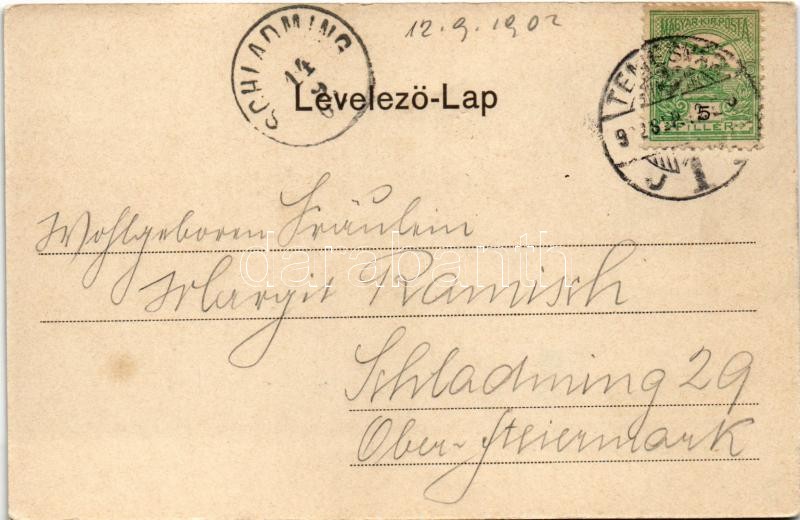 12.9.1902
MAGYAR KIR. POSTA
SCHLADMING
14
Levelezö-Lap
5
FILLER
J 1
Wohlgeboren Fräulein
Margit Ramisch
Schladming 29
Ober-Steiermark
darabanth